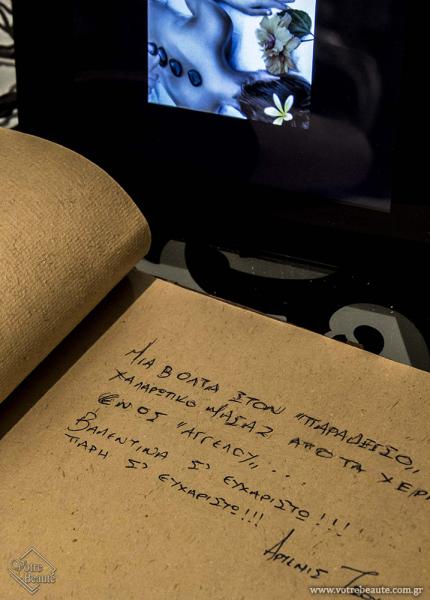 ΜΙΑ ΒΟΛΤΑ ΣΤΟΝ "ΠΑΡΑΔΕΙΣΟ,,
ΧΑΛΑΡΩΤΙΚΟ ΜΑΣΑΖ ΑΠΟ ΤΑ ΧΕΡΙ
ΕΝΟΣ "ΑΓΓΕΛΟΥ,, . . .
ΒΑΛΕΝΤΙΝΑ Σ' ΕΥΧΑΡΙΣΤΩ!!!!
ΠΑΡΗ Σ' ΕΥΧΑΡΙΣΤΩ!!!
Votre
Beauté
www.votrebeaute.com.gr